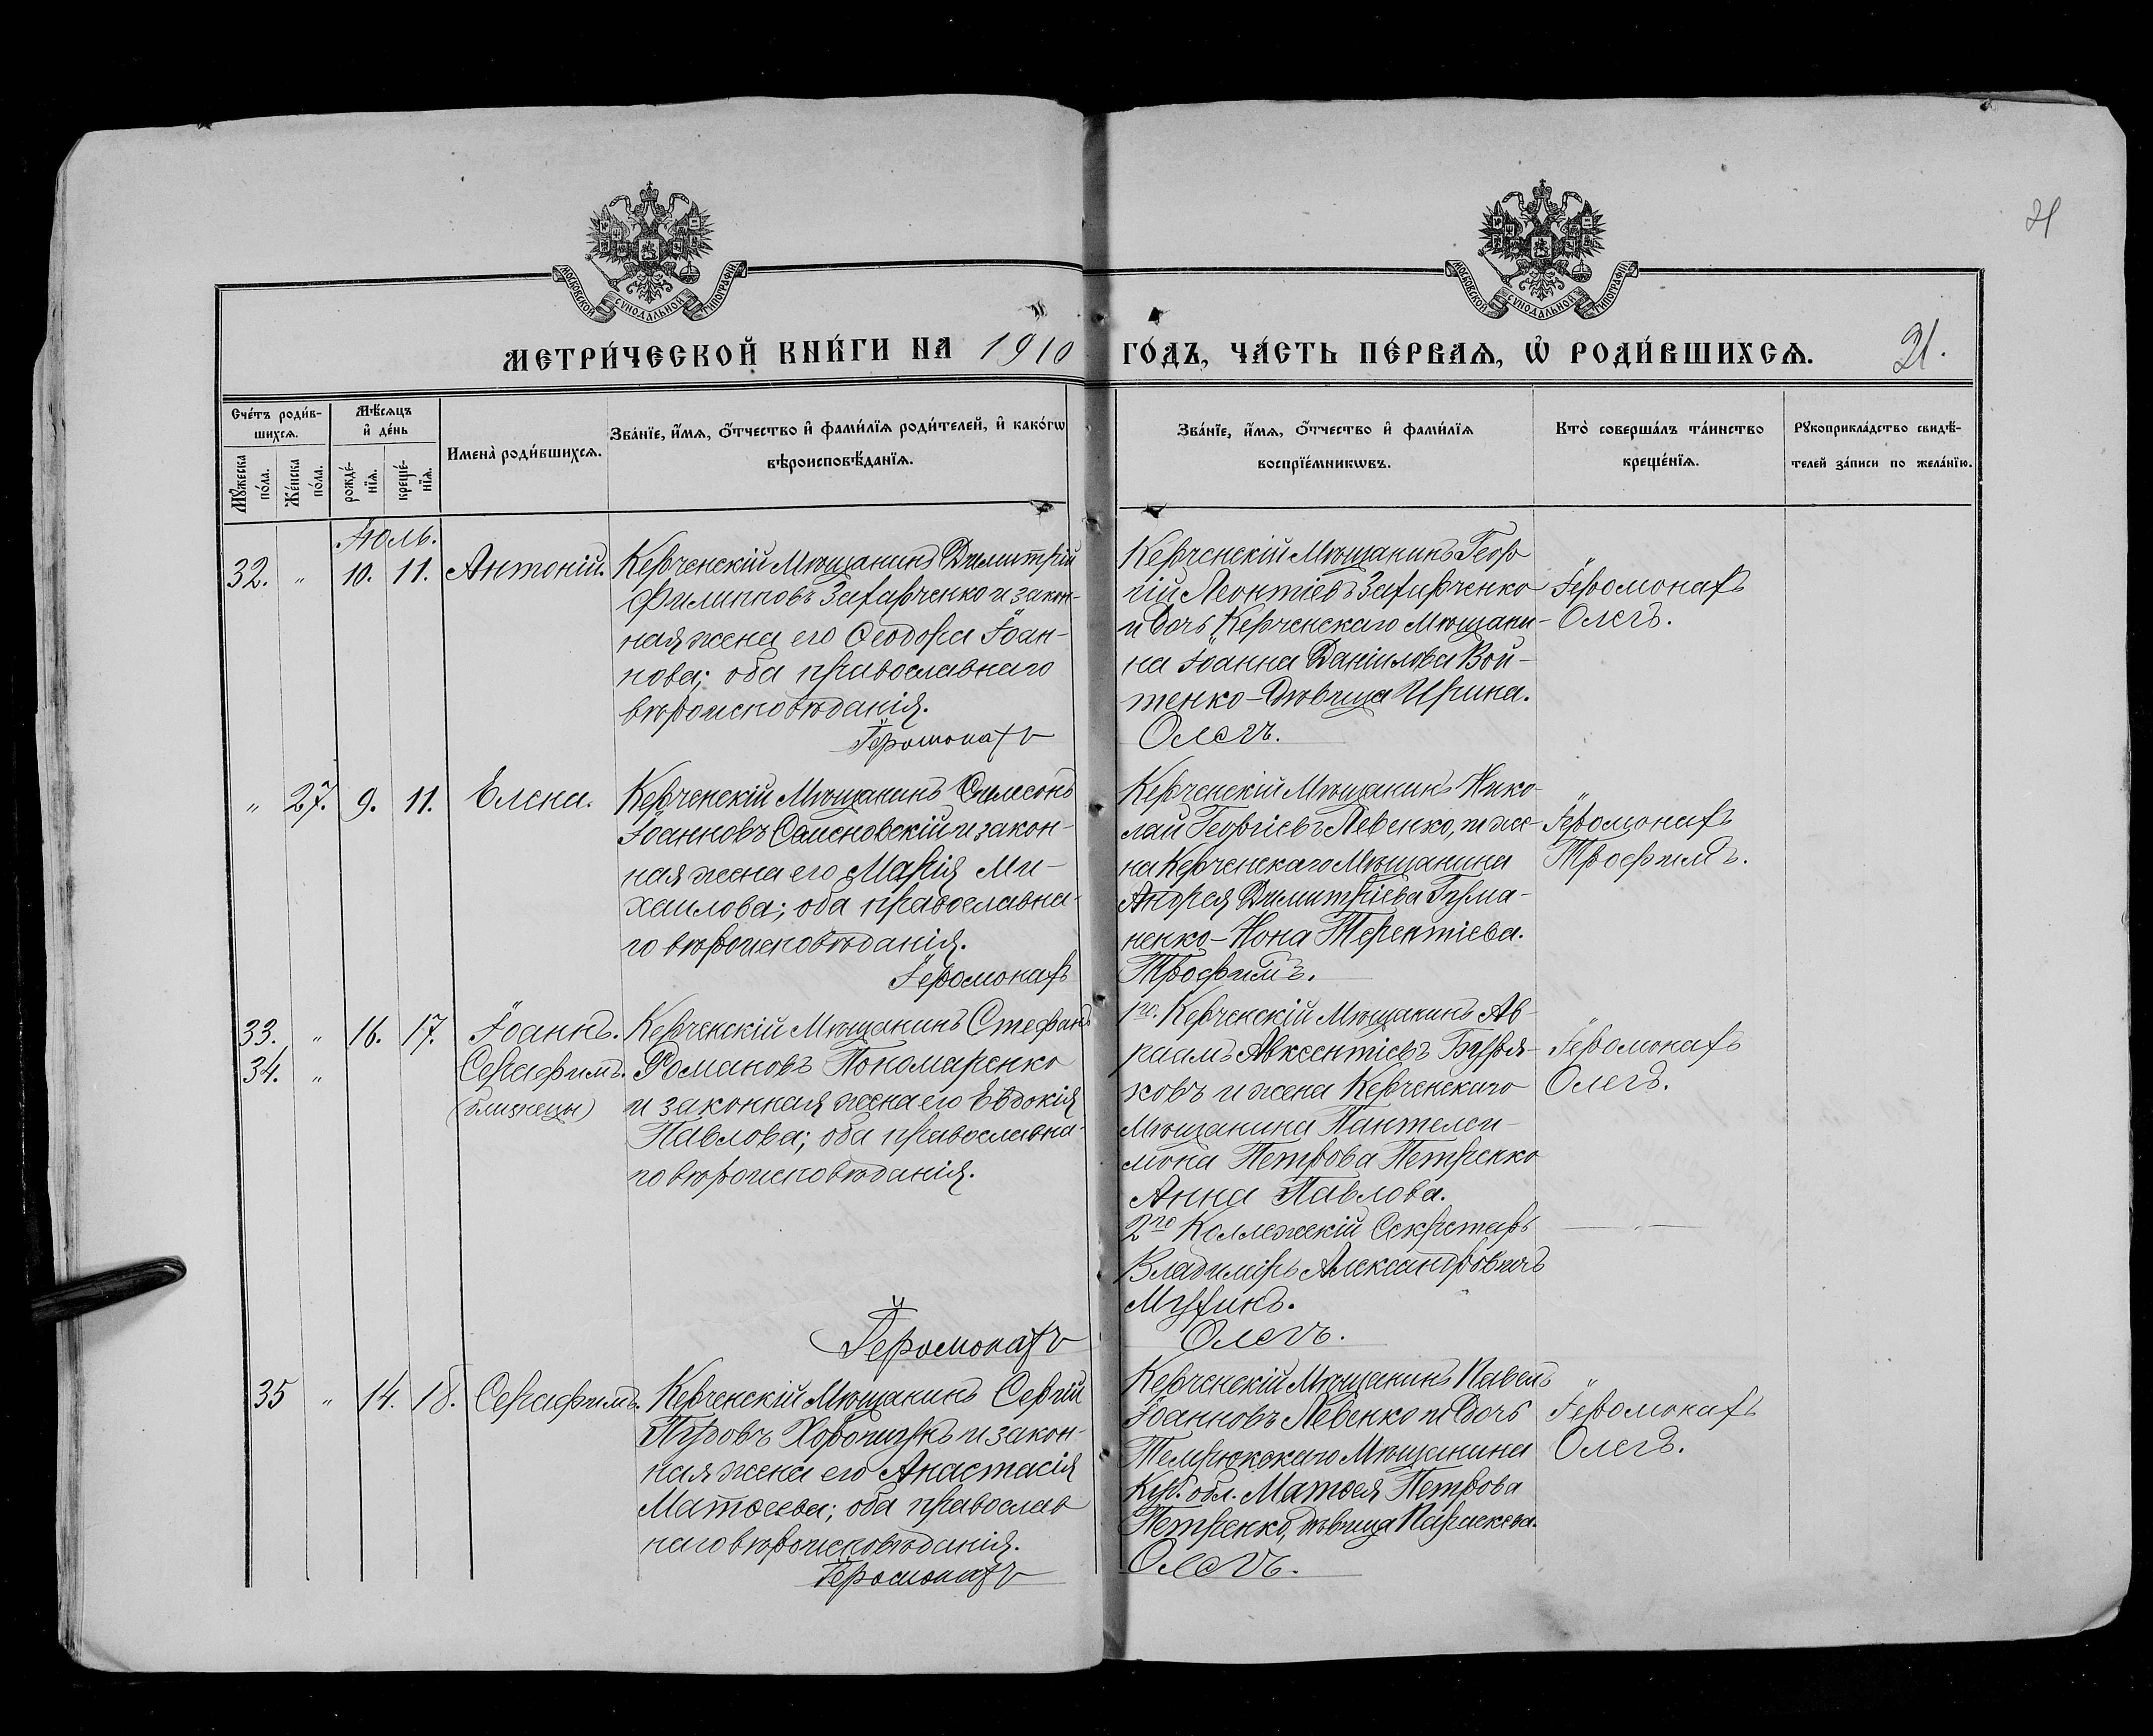 21
МОСКОВСКОЙ СѴНОДАЛЬНОЙ ТИПОГРАФІИ.
МОСКОВСКОЙ СѴНОДАЛЬНОЙ ТИПОГРАФІИ.
МЕТРИ́ЧЕСКОЙ КНИ́ГИ НА 1910 ГО́ДЪ, ЧА́СТЬ ПЕ́РВАѦ, Ѡ҆ РОДИ́ВШИХСѦ. 21.
Сче́тъ роди́в-
шихсѧ.
Мꙋ́жеска по́ла.
Же́нска по́ла.
Мѣ́сѧцъ
и҆ де́нь
рожде́-
нїѧ.
креще́-
нїѧ.
Имена̀ роди́вшихсѧ.
Зва́нїе, и҆́мѧ, ѻ҆́тчество и҆ фами́лїѧ роди́телей, и҆ како́гѡ
вѣроисповѣ́данїѧ.
Зва́нїе, и҆́мѧ, ѻ҆́тчество и҆ фами́лїѧ
воспрїе́мникѡвъ.
Кто̀ соверша́лъ та́инство
креще́нїѧ.
Рꙋкоприкла́дство свидѣ́-
телей за́писи по жела́нїю.
Іюль.
32. " 10. 11. Антоній.
Керченскій Мѣщанинъ Димитрій
Филипповъ Захарченко и закон-
ная жена его Ѳеодора Іоан-
нова; оба православнаго
вѣроисповѣданія.
Іеромонахъ
Керченскій Мѣщанинъ Геор
гій Леонтіевъ Захарченко
и дочь Керченскаго Мѣщани-
на Іоанна Даніилова Вой-
тенко - дѣвица Ирина.
Олегъ.
Іеромонахъ
Олегъ.
" 27. 9. 11. Елена.
Керченскій Мѣщанинъ Симеонъ
Іоанновъ Самсновскій и закон-
ная жена его Марія Ми-
хаилова; оба православна-
го вѣроисповѣданія.
Іеромонахъ
Керченскій Мѣщанинъ Нико-
лай Георгіевъ Левенко, и же-
на Керченскаго Мѣщанина
Андрея Димитріева Гума-
ненко - Нона Терентіева.
Трофимъ.
Іеромонахъ
Трофимъ.
33. " 16. 17. Іоаннъ.
34. " Серафимъ.
(близнецы)
Керченскій Мѣщанинъ Стефанъ
Романовъ Пономаренко
и законная жена его Евдокія
Павлова; оба православна-
го вѣроисповѣданія.
Іеромонахъ
1го. Керченскій Мѣщанинъ Ав-
раамъ Авксентіевъ Буря-
ковъ и жена Керченскаго
Мѣщанина Пантелеи-
мона Петрова Петренко
Анна Павлова.
2го Коллежскій Секретарь
Владиміръ Александровичъ
Мухинъ.
Олегъ.
Іеромонахъ
Олегъ.
35 " 14. 18. Серафимъ.
Керченскій Мѣщанинъ Сергій
Пудовъ Хоропунъ и закон-
ная жена его Анастасія
Матѳеева; оба православ
наго вѣроисповѣданія.
Іеромонахъ
Керченскій Мѣщанинъ Павелъ
Іоанновъ Левенко и дочь
Темрюкскаго Мѣщанина
Куб. обл. Матѳея Петрова
Петренко, дѣвица Параскева.
Олегъ.
Іеромонахъ
Олегъ.